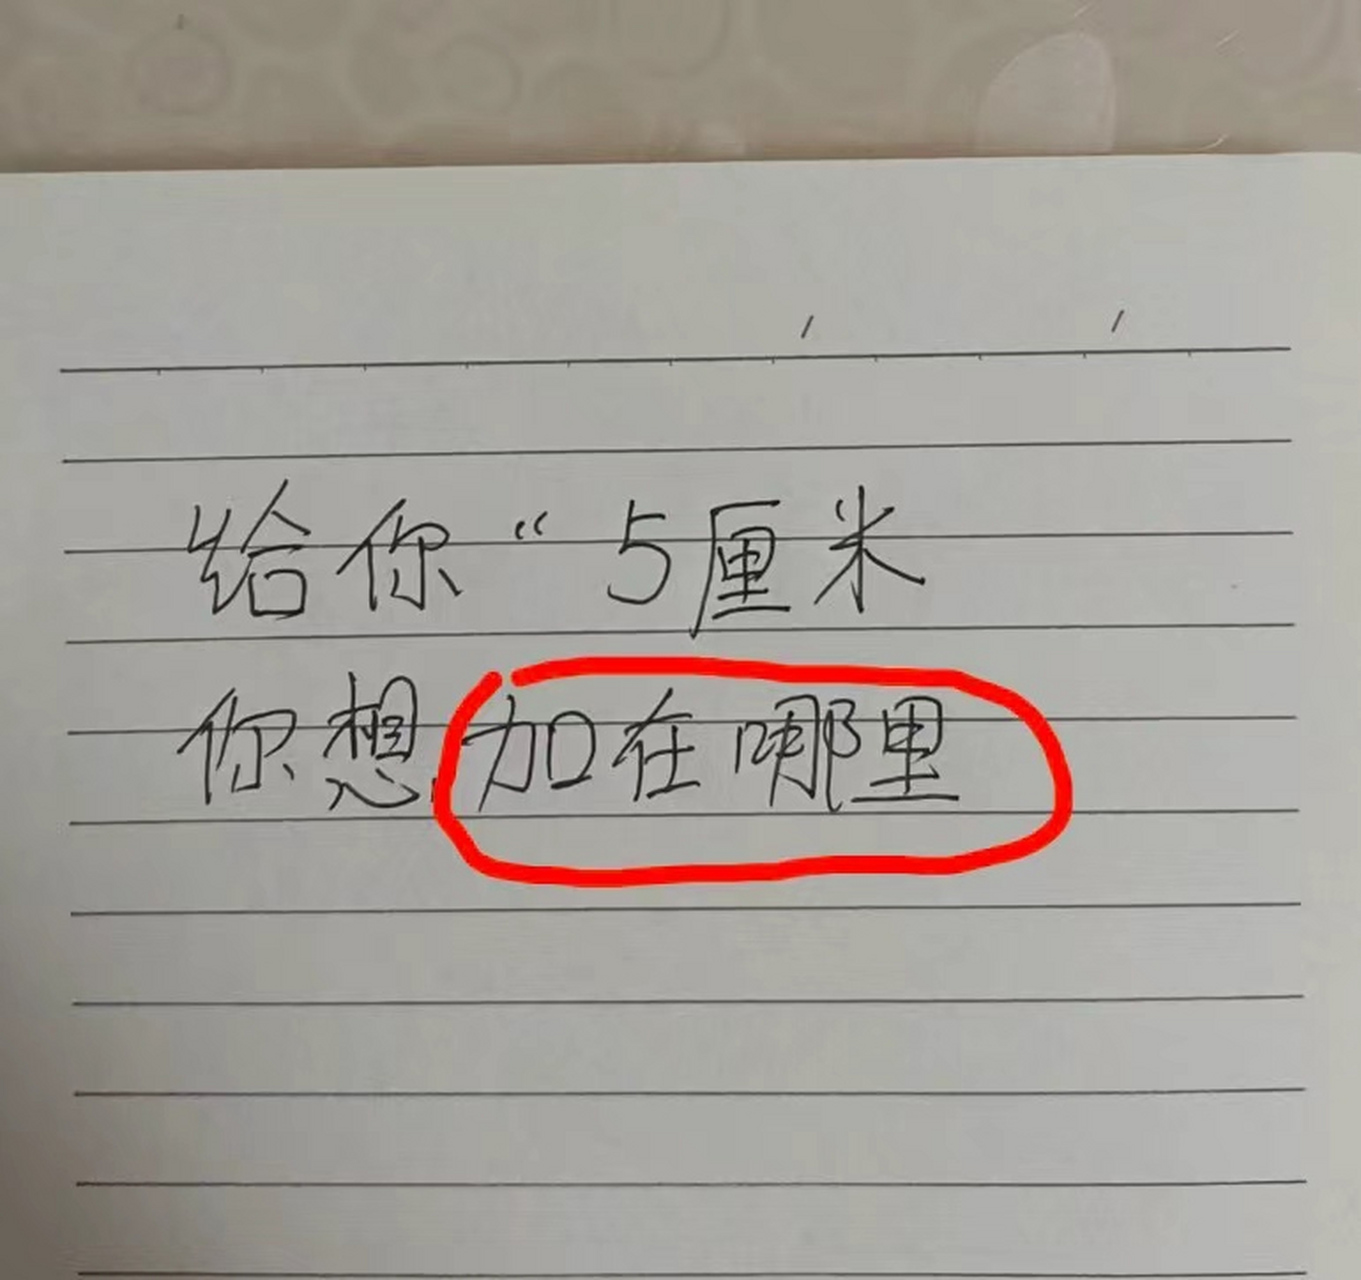 给你“5厘米
你想加在哪里